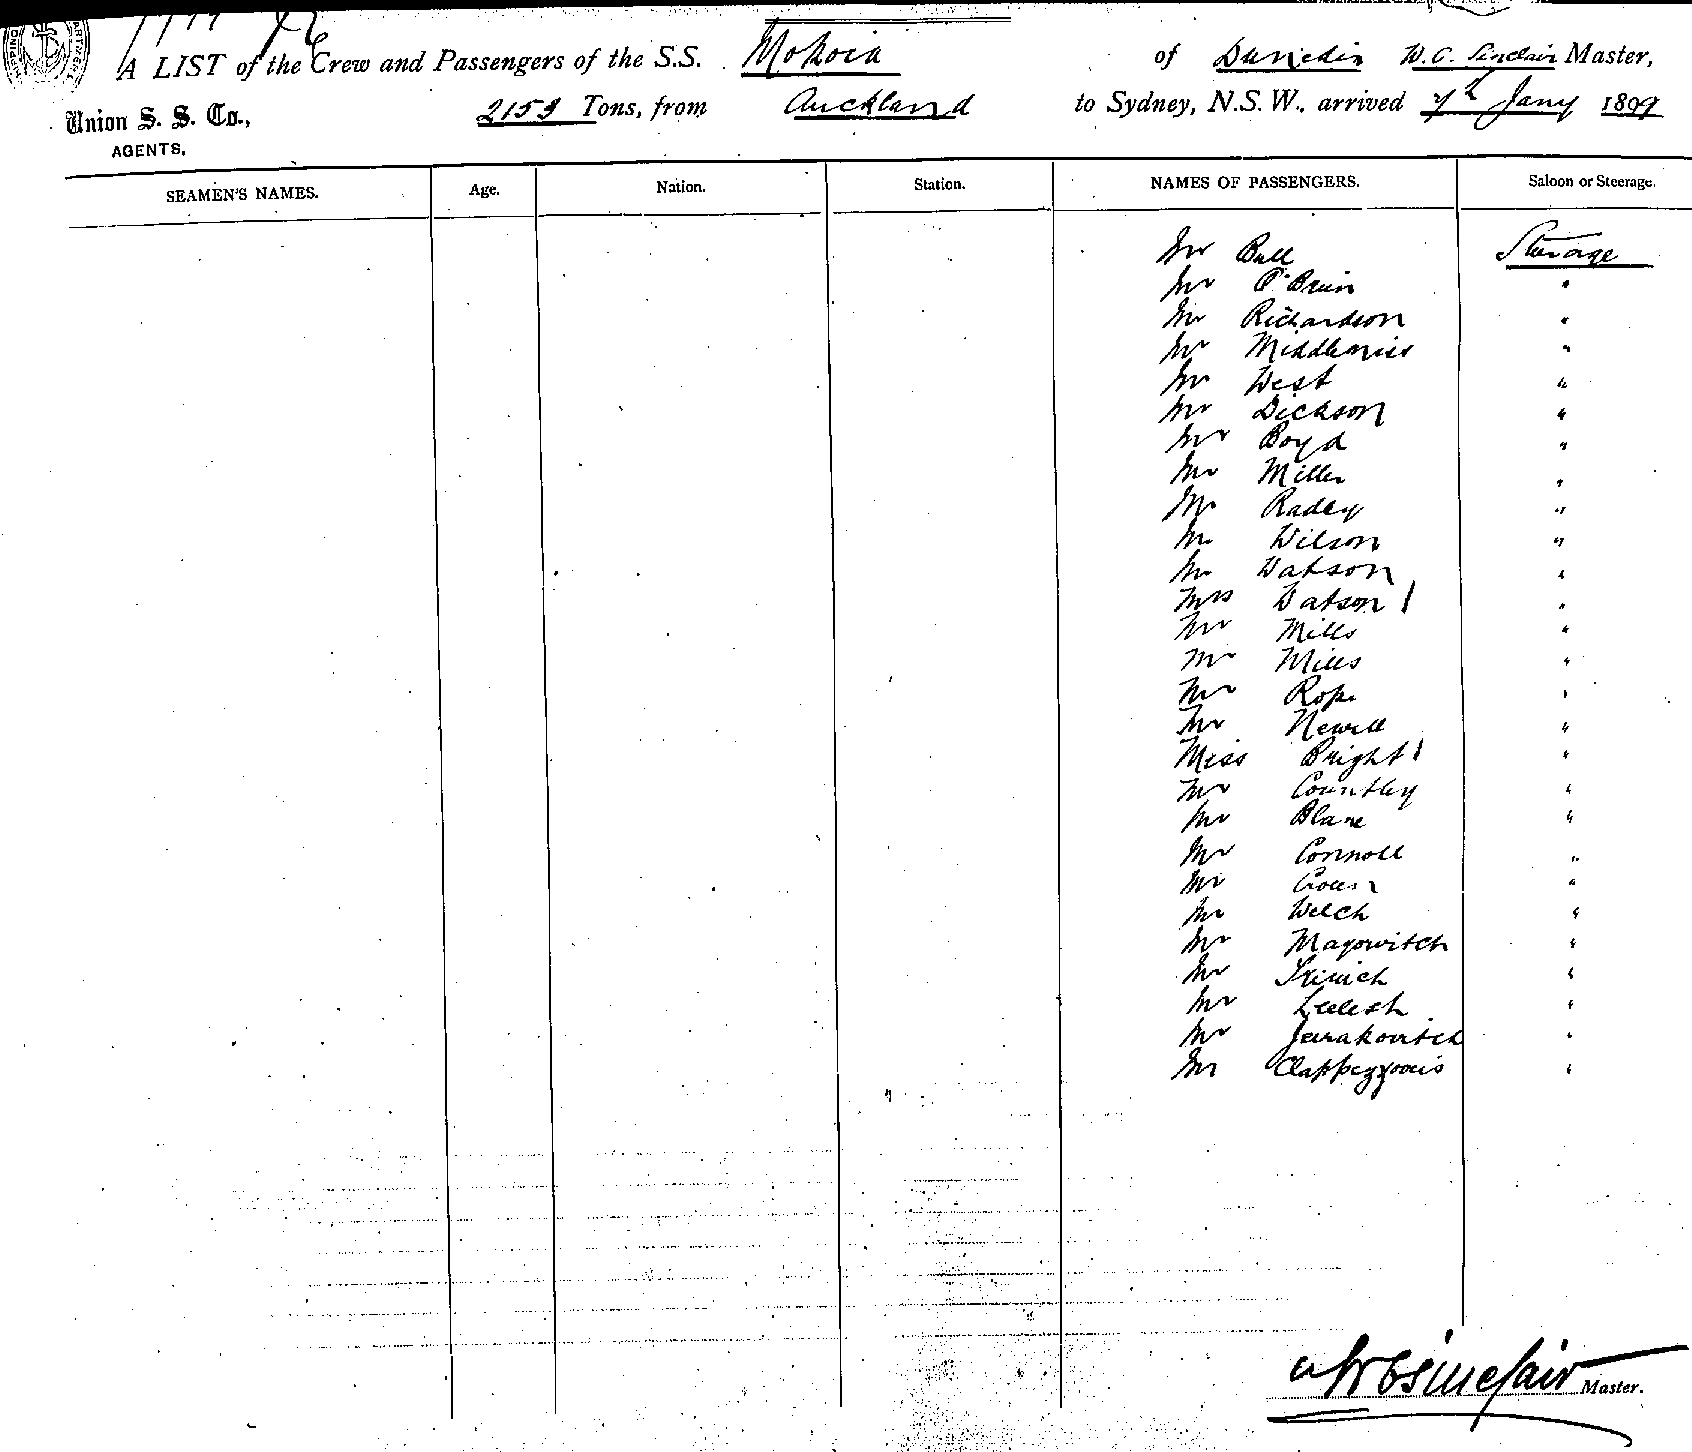 A LIST of the Crew and Passengers of the S.S. Mokoia of Dunedin W. C. Sinclair Master,
Union S. S. Co., 2153 Tons, from Auckland to Sydney, N.S.W., arrived 7th Jany 1899
AGENTS.
SEAMEN'S NAMES. Age. Nation. Station. NAMES OF PASSENGERS. Saloon or Steerage.
Mr Bull Steerage
Mr O'Brien "
Mr Richardson "
Mr Middlemiss "
Mr West "
Mr Dickson "
Mr Boyd "
Mr Miller "
Mr Radey "
Mr Wilson "
Mr Watson "
Mrs Watson 1 "
Mr Mills "
Mr Mills "
Mr Rope "
Mr Newell "
Miss Bright 1 "
Mr "
Mr Blane "
Mr Connell "
Mr "
Mr Welch "
Mr "
Mr "
Mr "
Mr "
Mr "
W C Sinclair Master.